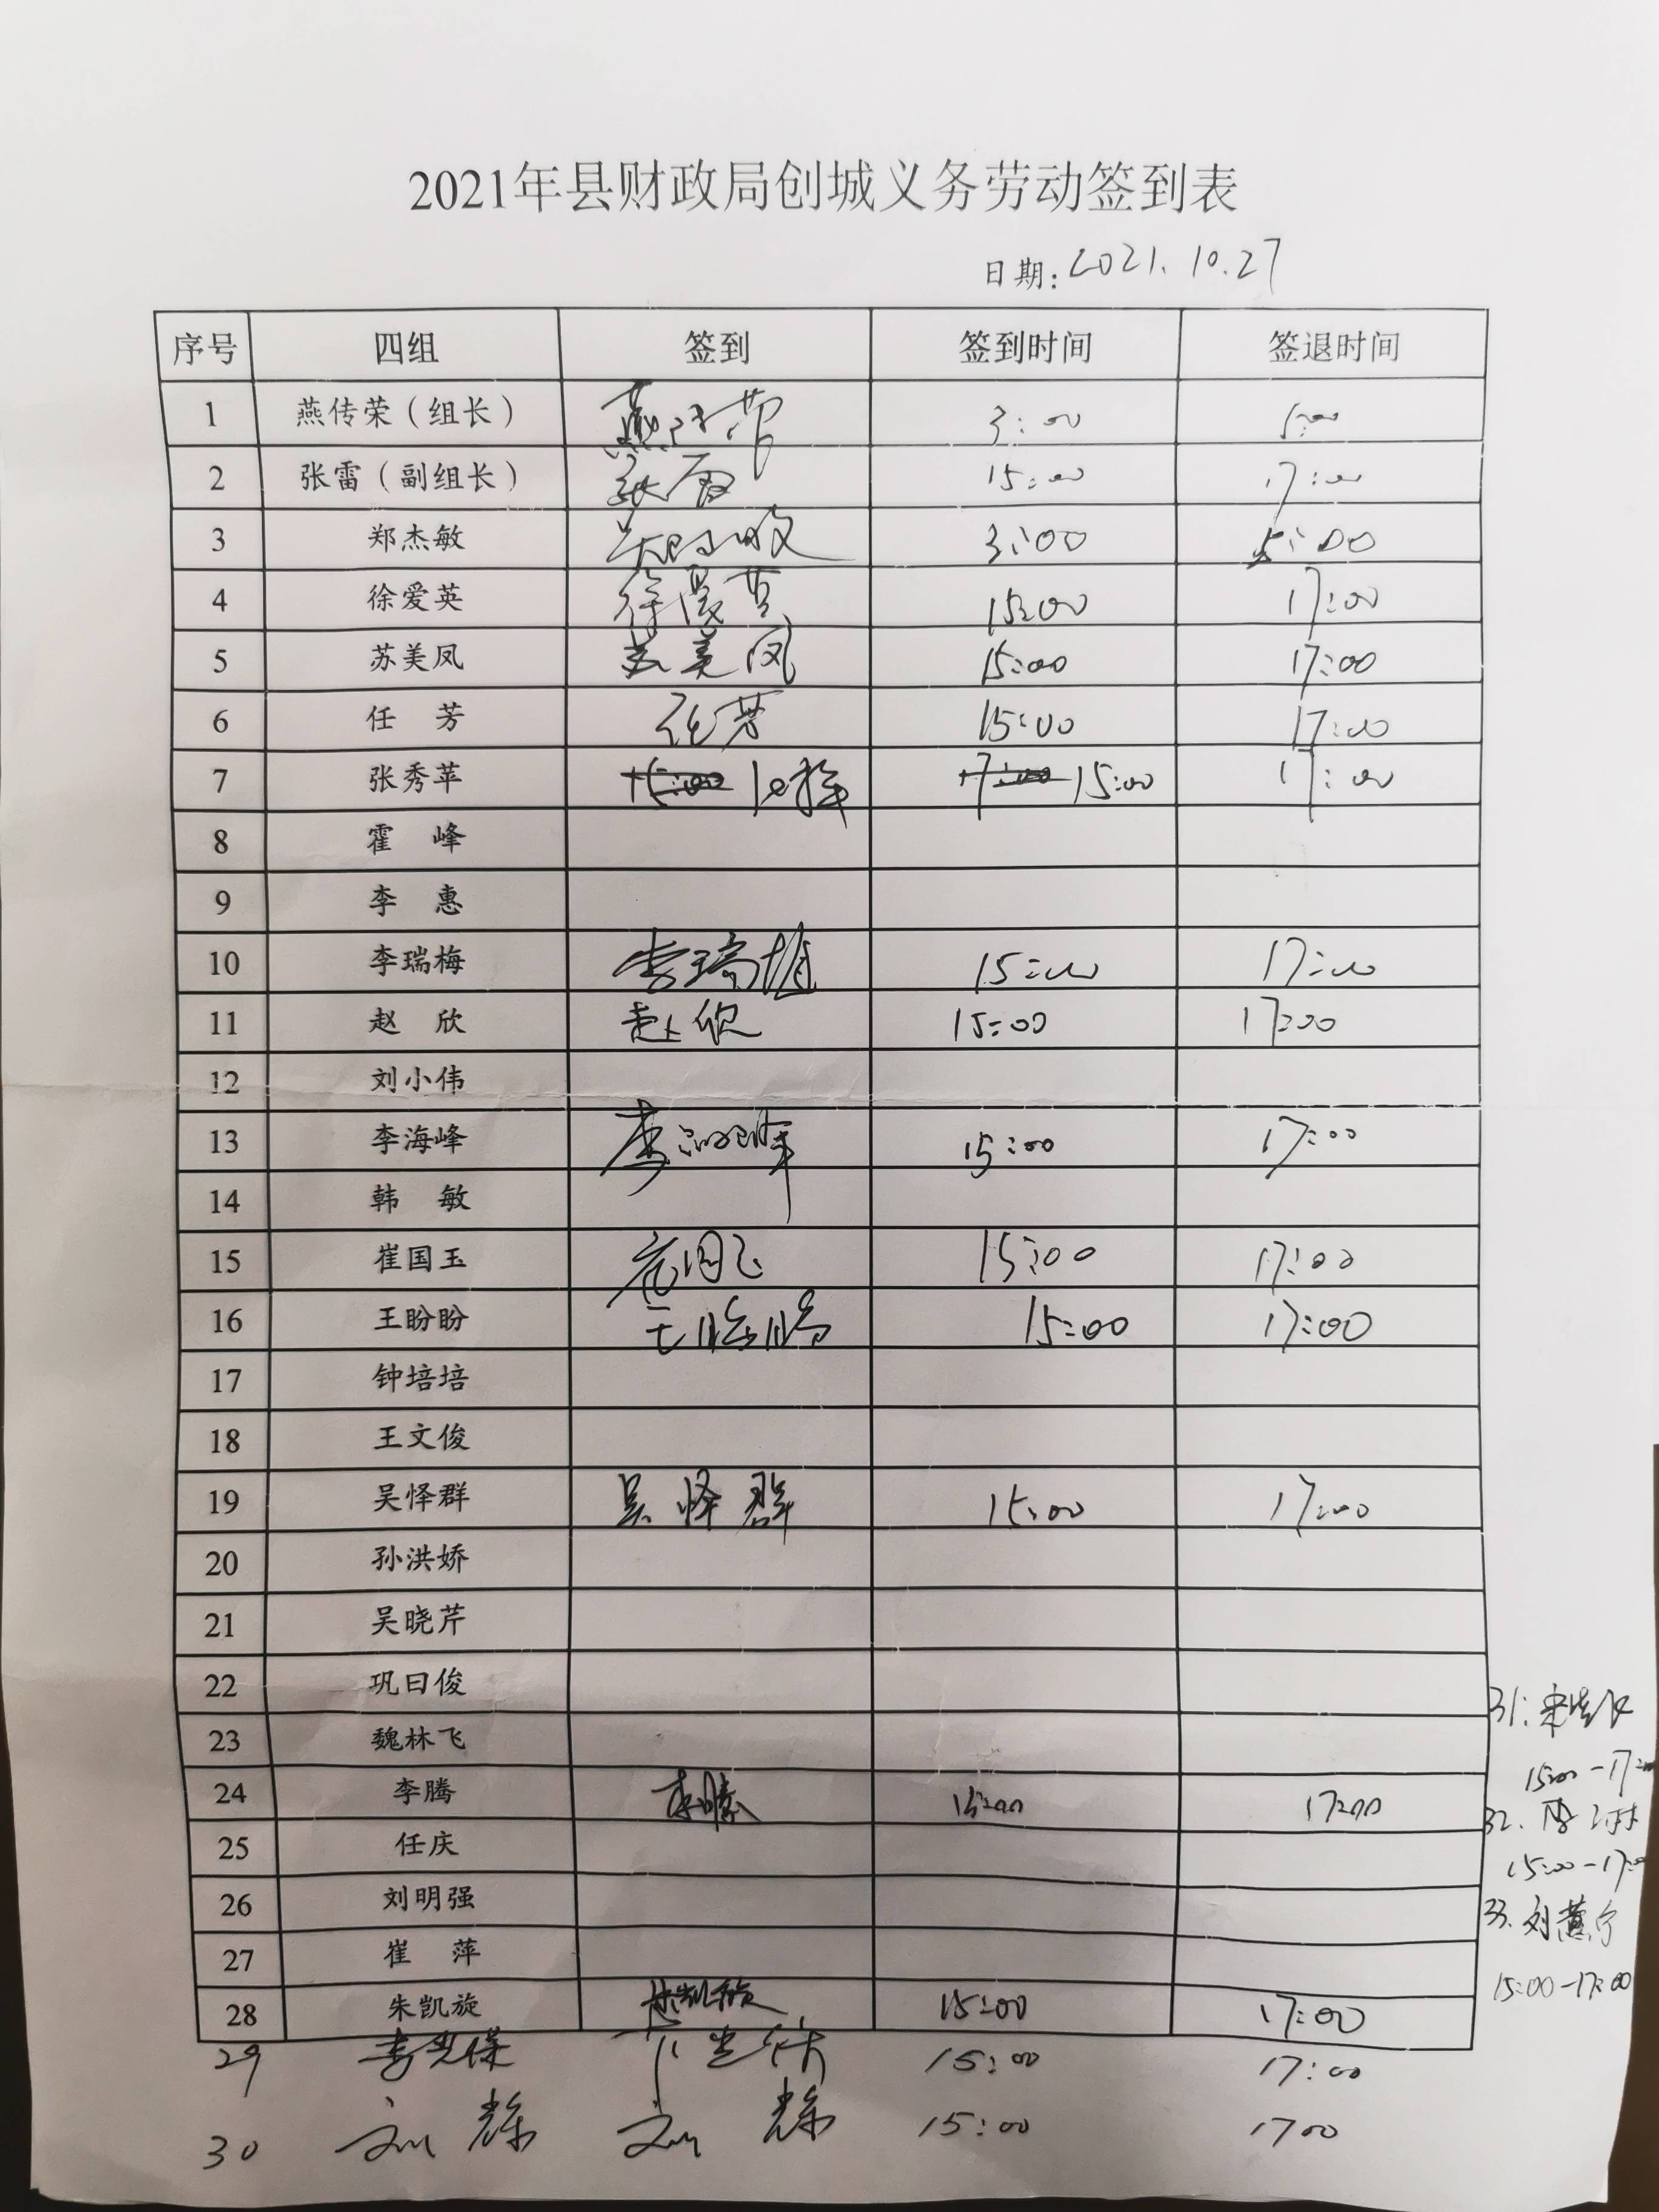 2021年县财政局创城义务劳动签到表
日期: 2021.10.27
序号 四组 签到 签到时间 签退时间
1 燕传荣（组长） 燕传荣 3:00 5:00
2 张雷（副组长） 张雷 15:00 17:00
3 郑杰敏 3:00 5:00
4 徐爱英 徐爱英 15:00 17:00
5 苏美凤 苏美凤 15:00 17:00
6 任 芳 任芳 15:00 17:00
7 张秀苹 15:00 17:00 15:00 17:00
8 霍 峰
9 李 惠
10 李瑞梅 李瑞梅 15:00 17:00
11 赵 欣 赵欣 15:00 17:00
12 刘小伟
13 李海峰 李海峰 15:00 17:00
14 韩 敏
15 崔国玉 崔国玉 15:00 17:00
16 王盼盼 王盼盼 15:00 17:00
17 钟培培
18 王文俊
19 吴怿群 吴怿群 15:00 17:00
20 孙洪娇
21 吴晓芹
22 巩曰俊
23 魏林飞
24 李腾 李腾 15:00 17:00
25 任庆
26 刘明强
27 崔 萍
28 朱凯旋 朱凯旋 15:00 17:00
29 15:00 17:00
30 刘 15:00 1700
31.
15:00-17:00
32.
15:00-17:00
33. 刘
15:00-17:00